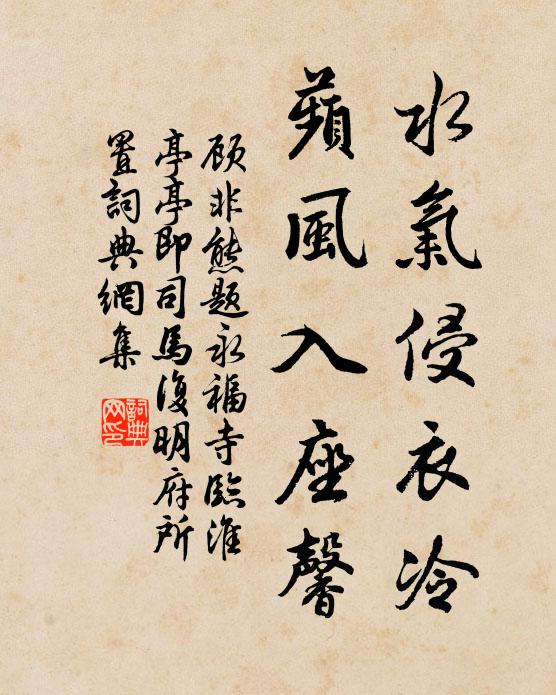 水氣侵衣冷
蘋風入座馨
顾非熊题永福寺臨淮
亭亭即司馬復明府所
置詞典網集
詞典网印